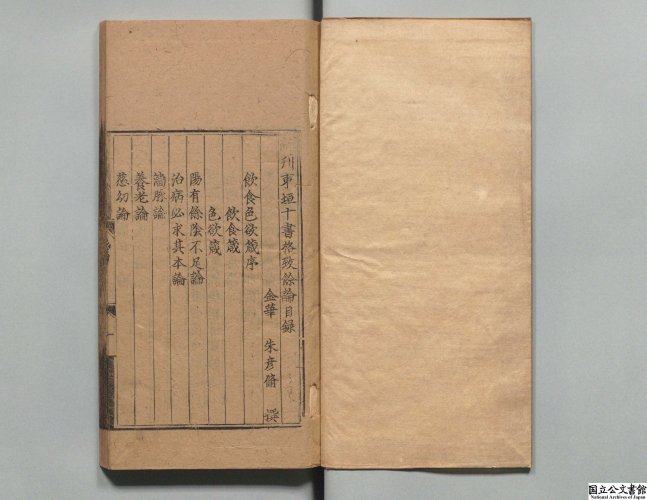 刋東垣十書格致餘論目録
金華 朱彦脩 撰
飲食色欲箴序
飲食箴
色欲箴
陽有餘陰不足論
治病必求其本論
濇脉論
養老論
慈幼論
国立公文書館
National Archives of Japan